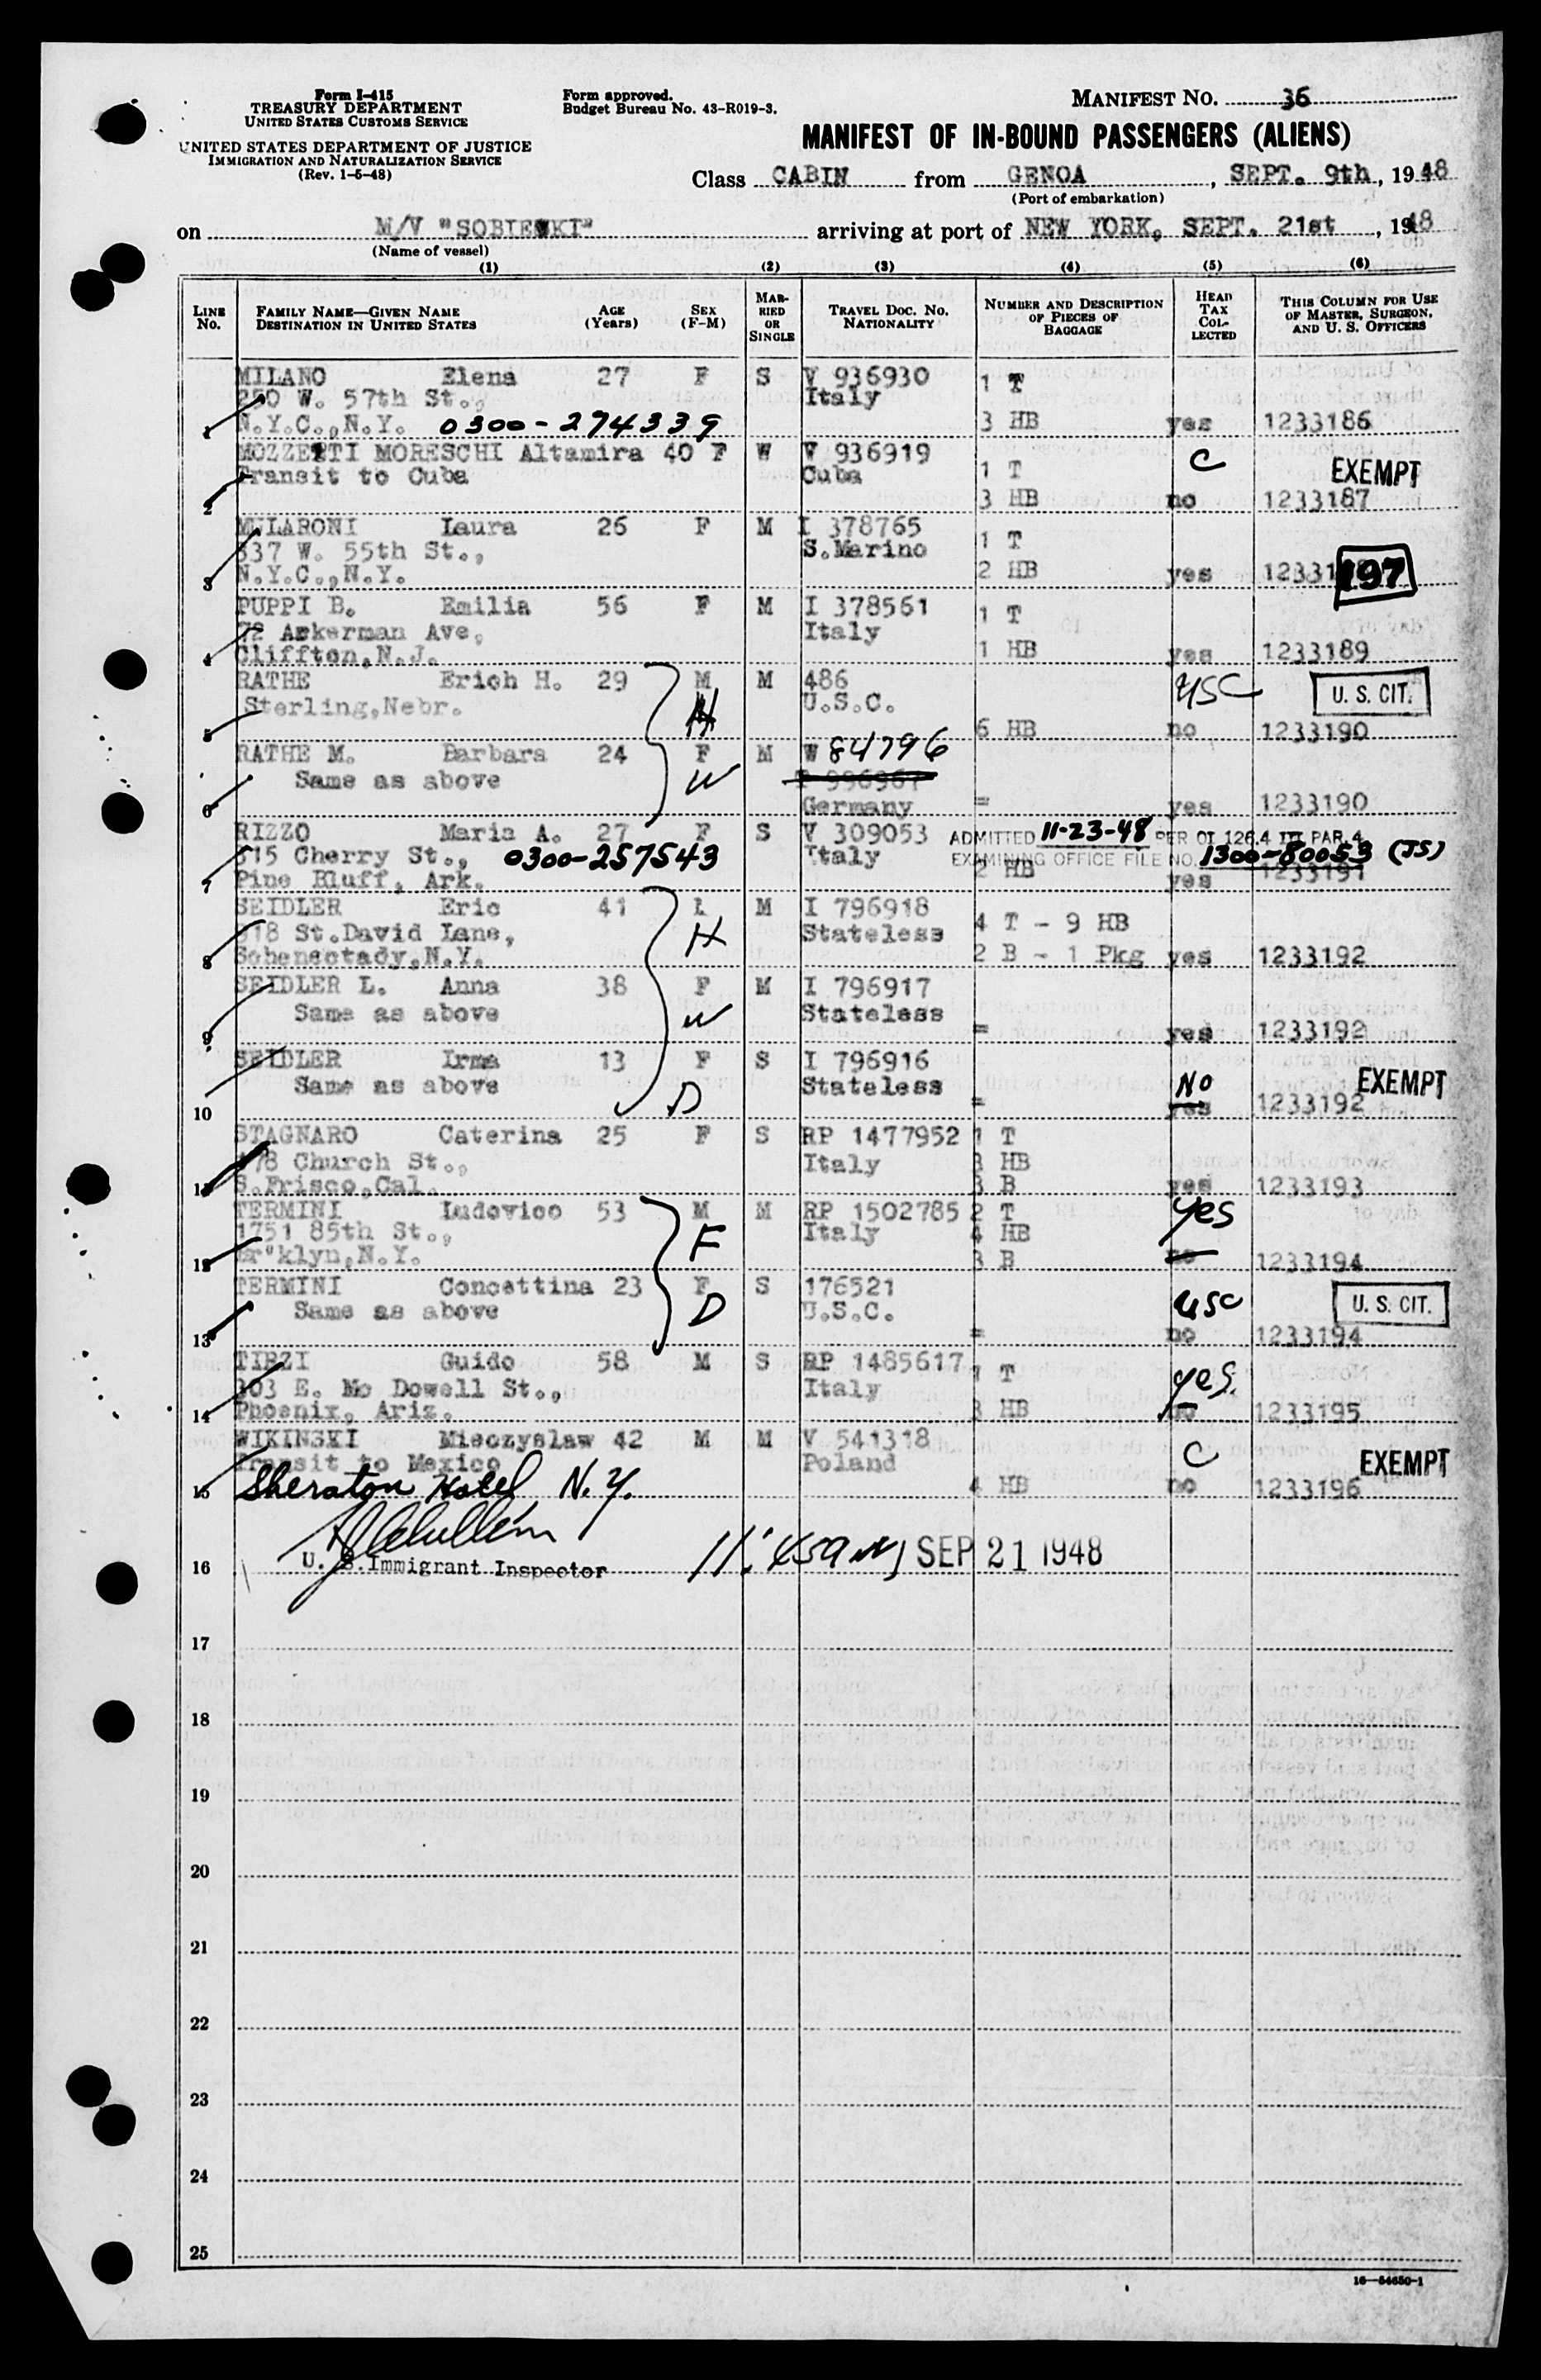 Form I-415
TREASURY DEPARTMENT
UNITED STATES CUSTOMS SERVICE
UNITED STATES DEPARTMENT OF JUSTICE
IMMIGRATION AND NATURALIZATION SERVICE
(Rev. 1-5-48)
Form approved.
Budget Bureau No. 43-R019-3.
MANIFEST NO. 36
MANIFEST OF IN-BOUND PASSENGERS (ALIENS)
Class CABIN from GENOA, SEPT. 9th, 1948
(Port of embarkation)
on M/V "SOBIESKI" arriving at port of NEW YORK, SEPT. 21st, 1948
(Name of vessel)
(1) (2) (3) (4) (5) (6)
LINE No. FAMILY NAME—GIVEN NAME DESTINATION IN UNITED STATES AGE (Years) SEX (F-M) MARRIED OR SINGLE TRAVEL DOC. NO. NATIONALITY NUMBER AND DESCRIPTION OF PIECES OF BAGGAGE HEAD TAX COLLECTED THIS COLUMN FOR USE OF MASTER, SURGEON, AND U. S. OFFICERS
MILANO Elena 27 F S V 936930 1 T
250 W. 57th St., Italy
1 N.Y.C.,N.Y. 0300-274339 3 HB yes 1233186
MOZZETTI MORESCHI Altamira 40 F W V 936919 C EXEMPT
Transit to Cuba Cuba 1 T
2 3 HB no 1233187
MULARONI Laura 26 F M I 378765 1 T
337 W. 55th St., S.Marino
3 N.Y.C.,N.Y. 2 HB yes 12331 197
PUPPI B. Emilia 56 F M I 378561 1 T
72 Ackerman Ave, Italy
4 Cliffton,N.J. 1 HB yes 1233189
RATHE Erich H. 29 M M 486 USC U. S. CIT.
Sterling,Nebr. H U.S.C.
5 6 HB no 1233190
RATHE M. Barbara 24 F M W 84796
Same as above W
6 Germany = yes 1233190
RIZZO Maria A. 27 F S V 309053 ADMITTED 11-23-48 PER OI 126.4 III PAR.4
515 Cherry St., 0300-257543 Italy EXAMINING OFFICE FILE NO. 1300-80053 (JS)
7 Pine Bluff, Ark. 2 HB yes 1233191
SEIDLER Eric 41 M I 796918 4 T - 9 HB
518 St.David Lane, H Stateless
8 Schenectady,N.Y. 2 B - 1 Pkg yes 1233192
SEIDLER L. Anna 38 F M I 796917
Same as above W Stateless
9 = yes 1233192
SEIDLER Irma 13 F S I 796916
Same as above D Stateless NO EXEMPT
10 = yes 1233192
STAGNARO Caterina 25 F S RP 1477952 1 T
478 Church St., Italy 3 HB
11 S.Frisco,Cal. 3 B yes 1233193
TERMINI Ludovico 53 M M RP 1502785 2 T yes
1751 85th St., F Italy 4 HB
12 Br'klyn,N.Y. 3 B no 1233194
TERMINI Concettina 23 F S 176521 USC U. S. CIT.
Same as above D U.S.C.
13 = no 1233194
TIRZI Guido 58 M S RP 1485617 1 T yes.
303 E. Mc Dowell St., Italy
14 Phoenix, Ariz. 3 HB no 1233195
WIKINSKI Mieczyslaw 42 M M V 541318 C EXEMPT
Transit to Mexico Poland
15 Sheraton Hotel, N.Y. 4 HB no 1233196
16 U. S. Immigrant Inspector 11:45am SEP 21 1948
17
18
19
20
21
22
23
24
25
16—54650-1